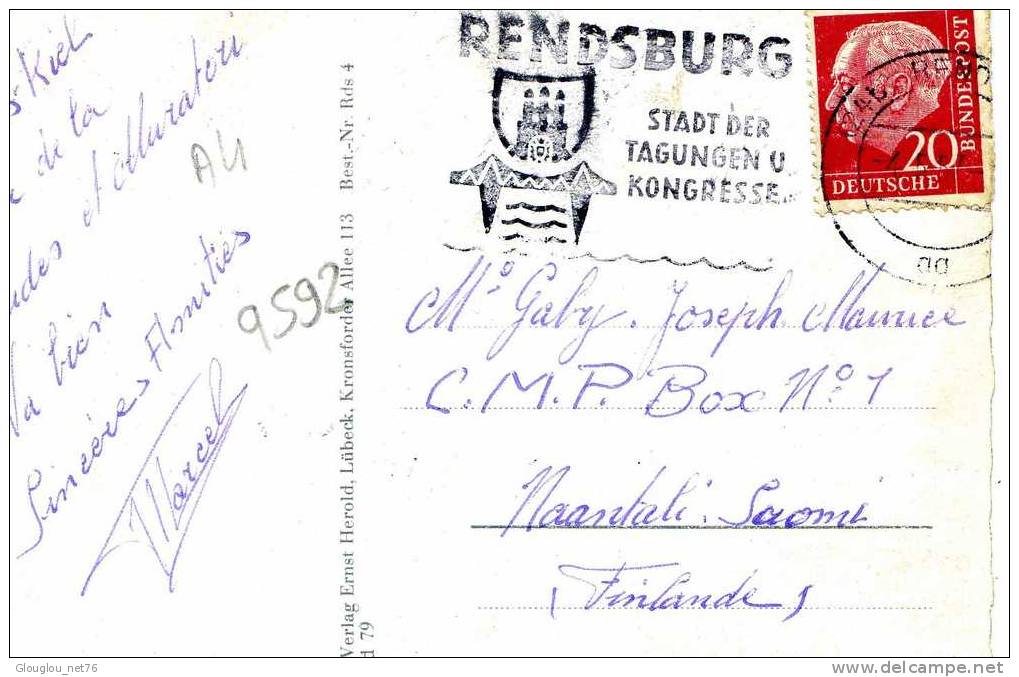 Kiel
de la
A4
Va bien
Sincères Amitiés
Marcel
9592
Verlag Ernst Herold, Lübeck, Kronsforder Allee 113 Best.-Nr Rds 4
d 79
RENDSBURG
STADT DER
TAGUNGEN U
KONGRESSE
20
DEUTSCHE
BUNDESPOST
aa
Mº Gaby. Joseph Maurice
C.M.P. Box Nº 1
Naantali. Saomi
(Finlande)
Glouglou_net76
www.delcampe.net